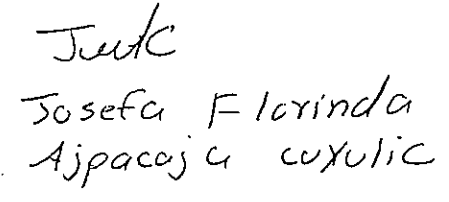 Josefa Florinda
Ajpacaja cuxulic